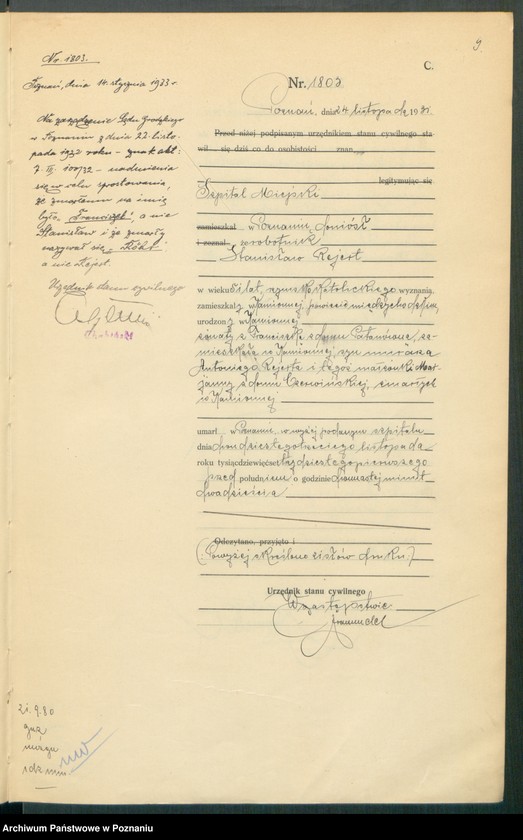 9
C.
Nr. 1803.
Poznań, dnia 14. stycznia 1933 r.
Na zarządzenie Sądu Grodzkiego
w Poznaniu z dnia 22. listo-
pada 1932 roku – znak akt:
nadmienia
się w celu sprostowania,
że zmarłemu na imię
było „Franciszek” a nie
Stanisław i że zmarły
nazywał się
a nie Rejert.
Urzędnik stanu cywilnego
Nr. 1803
Poznań, dnia 24 listopada 1931.
Przed niżej podpisanym urzędnikiem stanu cywilnego sta
wił się dziś co do osobistości znan
legitymując się
Szpital Miejski
zamieszkał w Poznaniu doniósł
i zeznał, że robotnik
Stanisław Rejert
w wieku lat, rzymsko katolickiego wyznania,
zamieszkały w Kamionnej, powiecie międzychodzkim,
urodzony w Kamionnej
żonaty z Franciszką z domu za-
mieszkałą w Kamionnej, syn murarza
Antoniego Rejerta i tegoż małżonki Mar-
janny z domu Czerwińskiej, zmarłych
w Kamionnej
umarł w Poznaniu, w wyżej podanym szpitalu
dnia dwudziestego trzeciego listopada
roku tysiącdziewięćset trzydziestego pierwszego
przed południem o godzinie dwunastej minut
dwadzieścia
Odczytano, przyjęto i
(Powyżej skreślono słów druku.)
Urzędnik stanu cywilnego
W zastępstwie
21.9.80
Archiwum Państwowe w Poznaniu
szukajwarchiwach.gov.pl